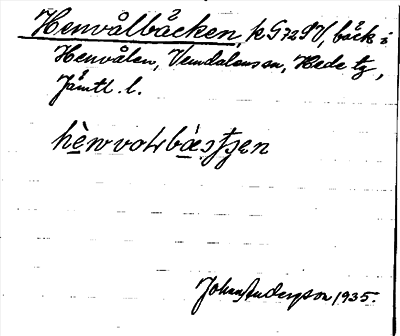 Henvålbäcken, k G72SV, bäck i
Henvålen, Vemdalens sn, Hede tg,
Jämtl. l.
hènvoɫrbäsʈʂen
Johan Anderson 1935.